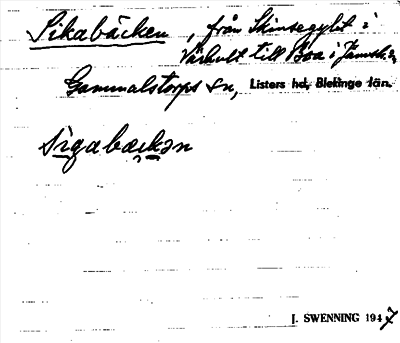 Sikabäcken, från Skinsegylet i
Vårhult till Boa i Jämsh. sn
Gammalstorps sn, Listers hd, Blekinge län.
sìgabækən
J. SWENNING 1947